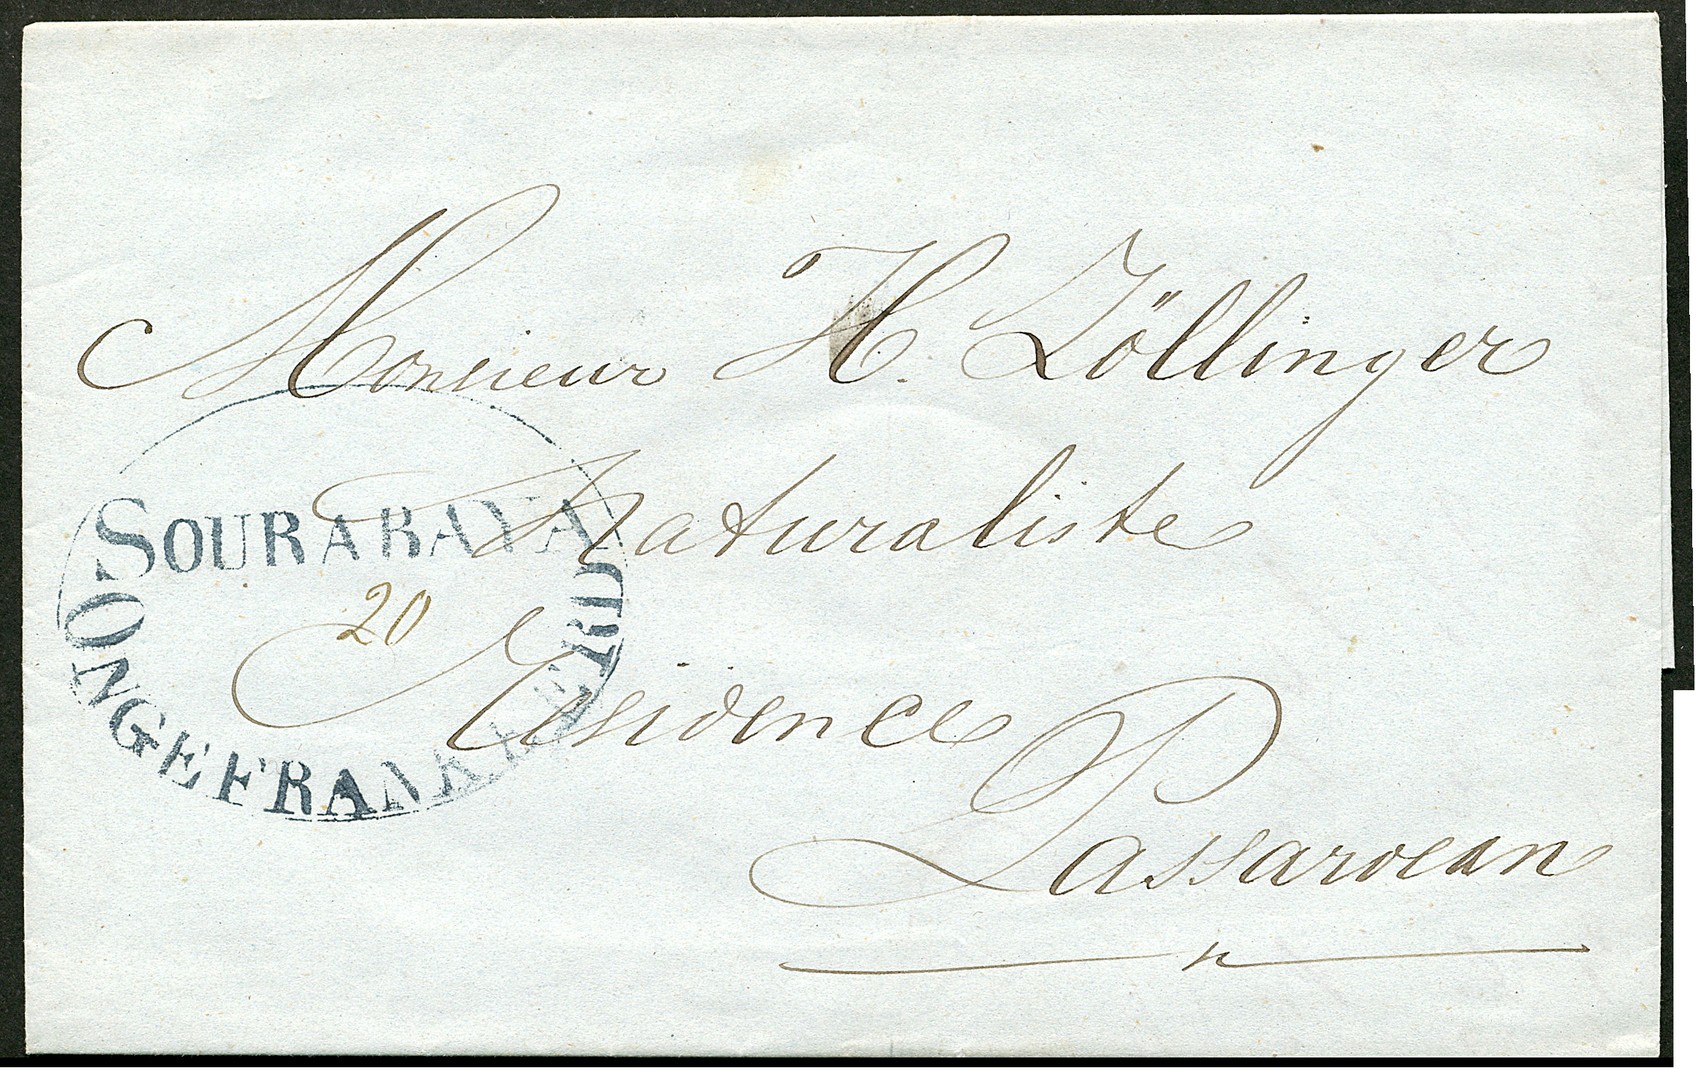 Monsieur H. Zöllinger
Naturaliste
Residence
Passaroean
SOURABAYA
20
ONGEFRANKEERD